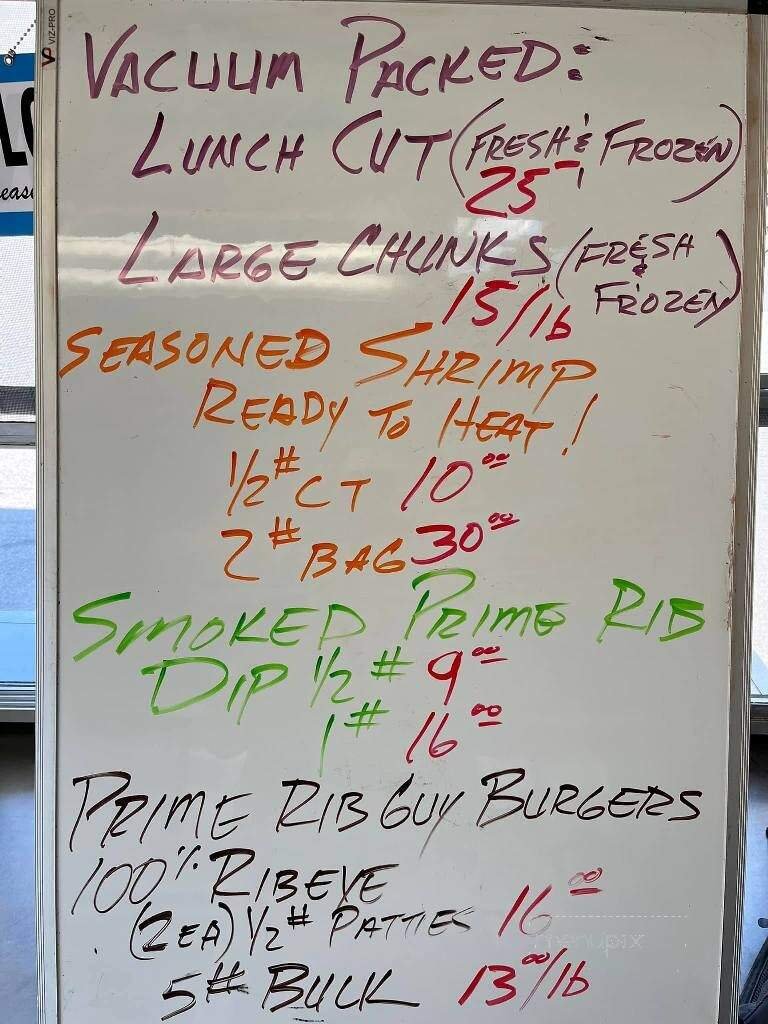 VP VIZ-PRO
VACUUM PACKED:
LUNCH CUT (FRESH & FROZEN)
25
LARGE CHUNKS (FRESH
& FROZEN)
15/lb
SEASONED SHRIMP
READY TO HEAT!
1/2# CT 10 00
2# BAG 30 00
SMOKED PRIME RIB
DIP 1/2# 9 00
1# 16 00
PRIME RIB GUY BURGERS
100% RIBEYE
(2EA) 1/2# PATTIES 16 00
menupix
5# BULK 13 00/lb